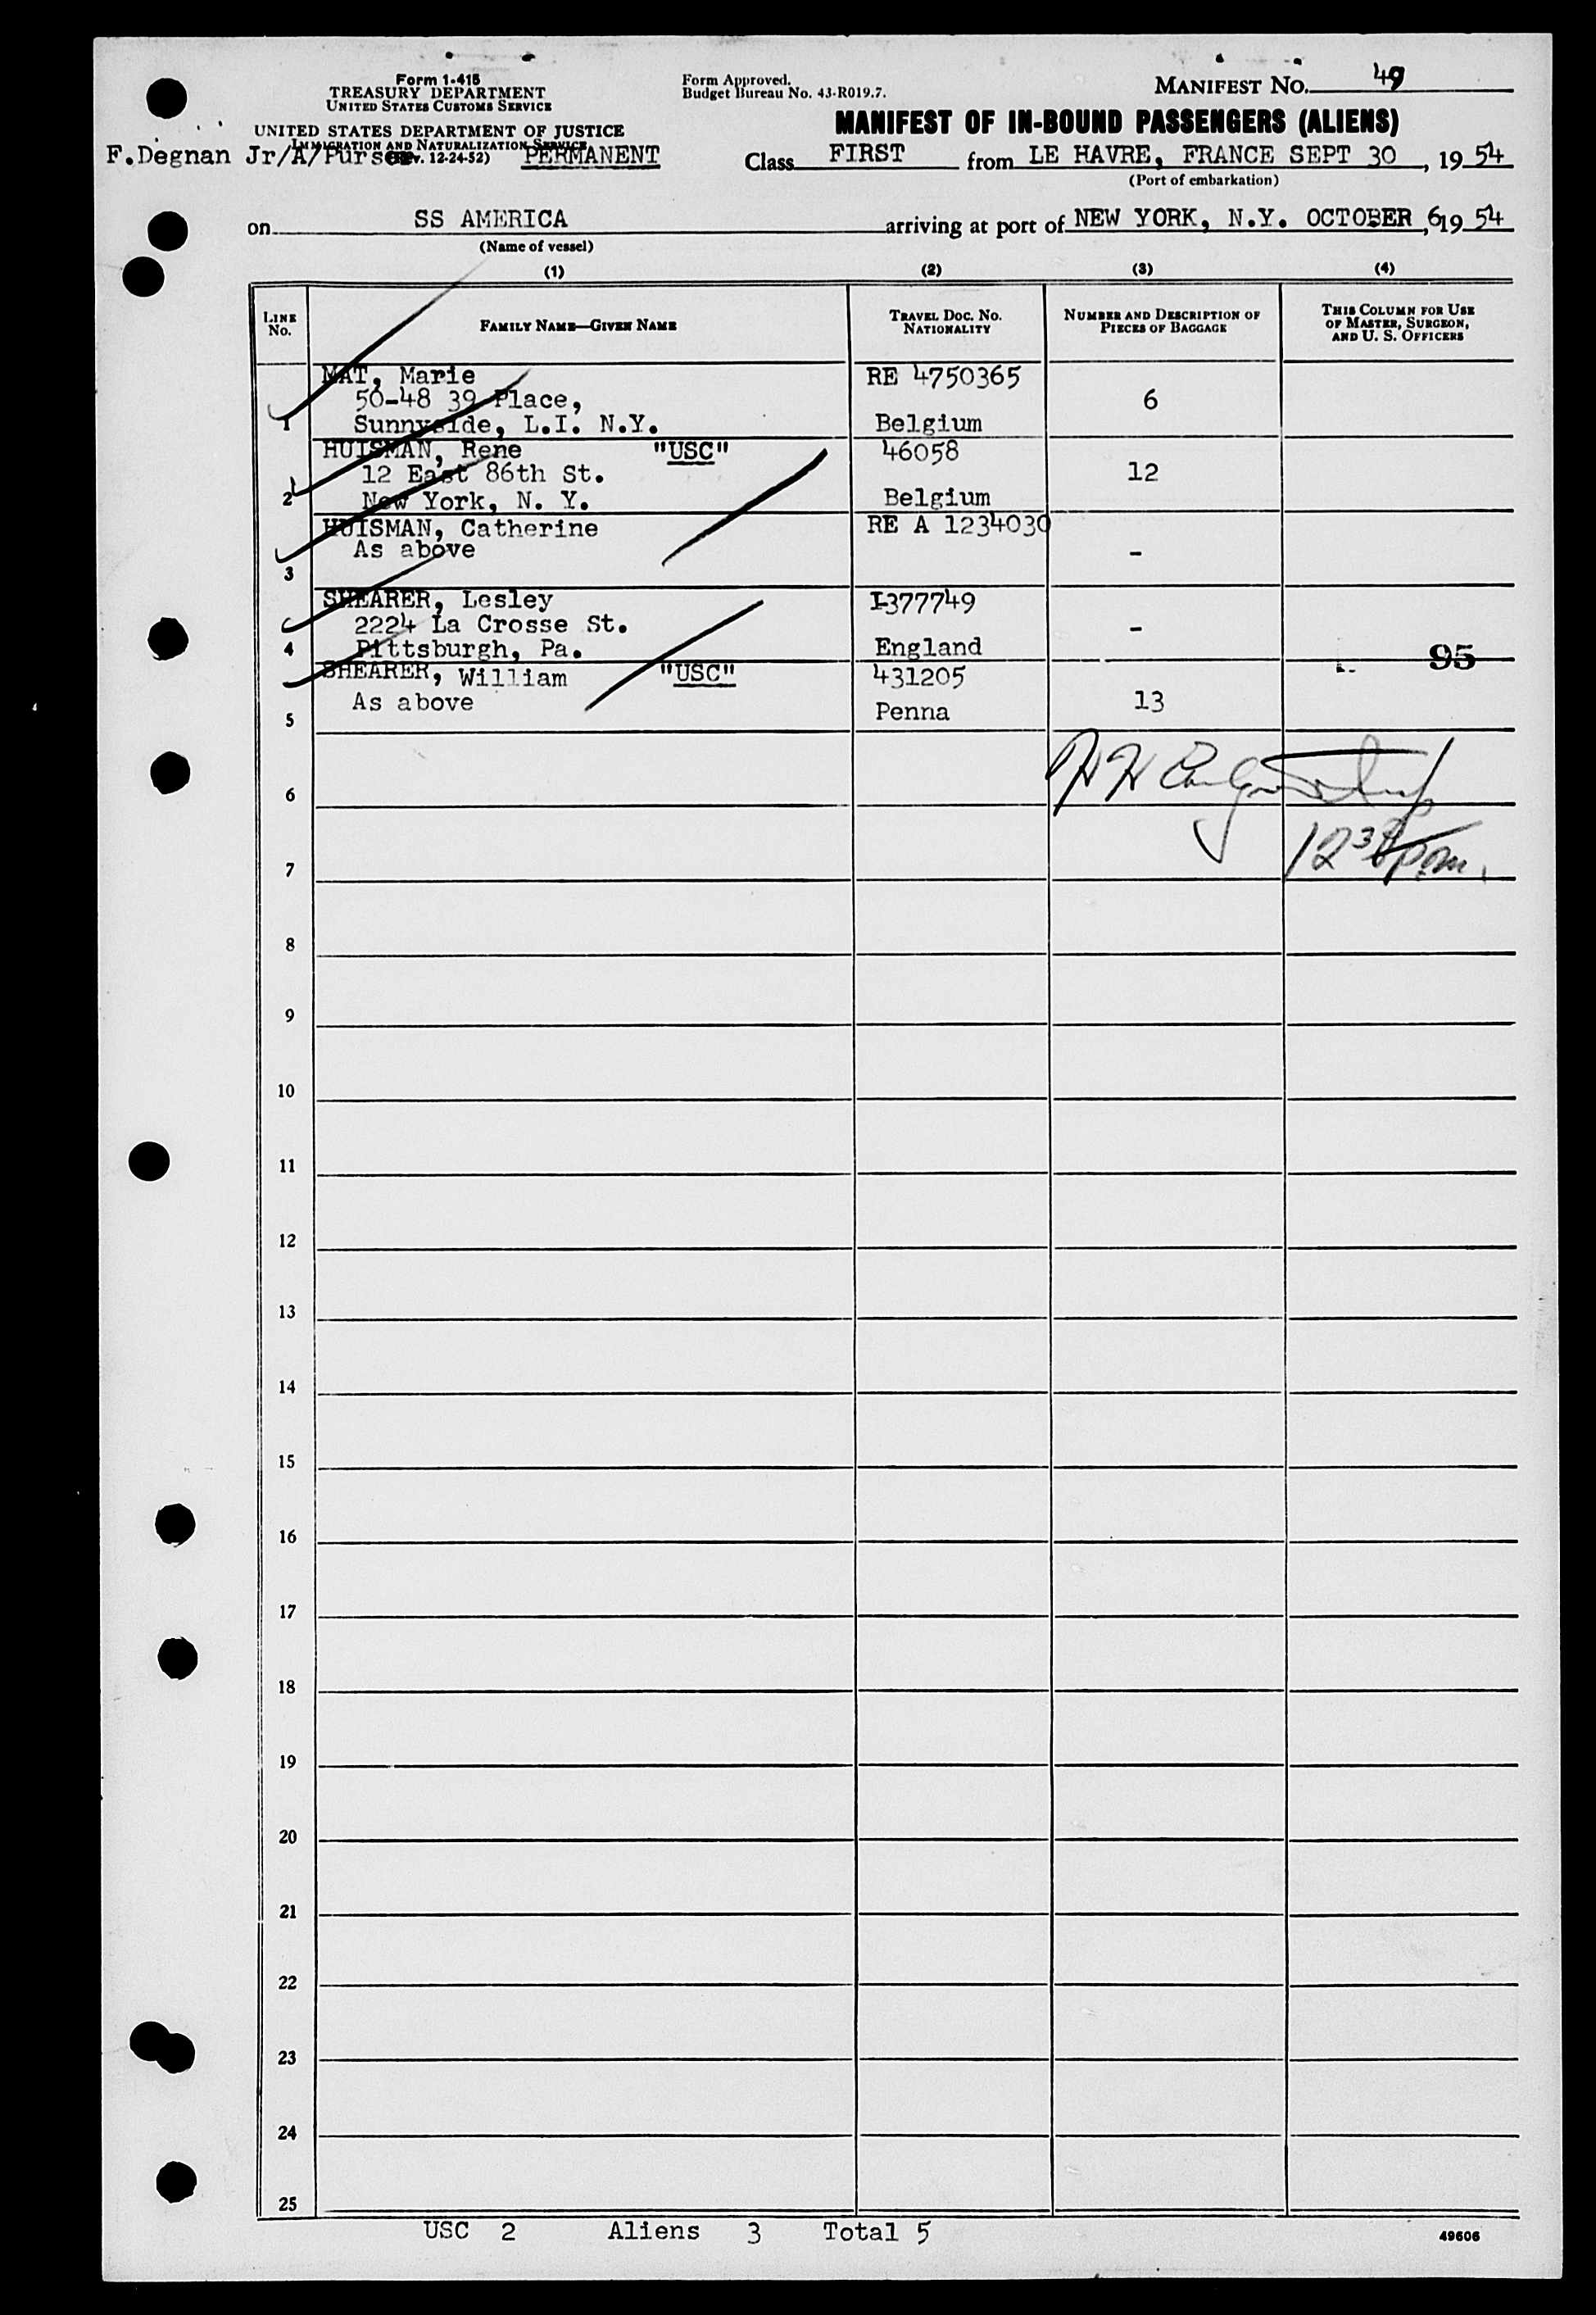 Form I-415
TREASURY DEPARTMENT
UNITED STATES CUSTOMS SERVICE
UNITED STATES DEPARTMENT OF JUSTICE
IMMIGRATION AND NATURALIZATION SERVICE
(Rev. 12-24-52)
F.Degnan Jr/A/Purser
PERMANENT
Form Approved.
Budget Bureau No. 43-R019.7.
MANIFEST NO. 49
MANIFEST OF IN-BOUND PASSENGERS (ALIENS)
Class FIRST from LE HAVRE, FRANCE SEPT 30, 19 54
(Port of embarkation)
on SS AMERICA arriving at port of NEW YORK, N.Y. OCTOBER 6, 19 54
(Name of vessel)
(1) (2) (3) (4)
LINE No.
FAMILY NAME—GIVEN NAME
TRAVEL DOC. NO. NATIONALITY
NUMBER AND DESCRIPTION OF PIECES OF BAGGAGE
THIS COLUMN FOR USE OF MASTER, SURGEON, AND U. S. OFFICERS
MAT, Marie RE 4750365
50-48 39 Place, 6
1 Sunnyside, L.I. N.Y. Belgium
HUISMAN, Rene "USC" 46058
12 East 86th St. 12
2 New York, N. Y. Belgium
HUISMAN, Catherine RE A 1234030
As above -
3
SHEARER, Lesley I-377749
2224 La Crosse St. -
4 Pittsburgh, Pa. England 95
SHEARER, William "USC" 431205
As above 13
5 Penna
6
7 12 30 pm.
8
9
10
11
12
13
14
15
16
17
18
19
20
21
22
23
24
25
USC 2 Aliens 3 Total 5
49606